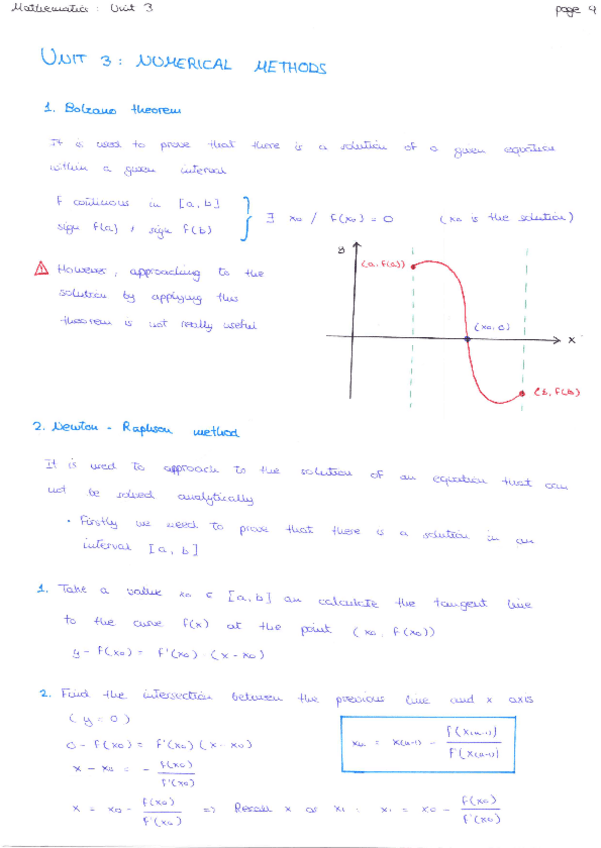 Mathematics: Unit 3
page 4
UNIT 3: NUMERICAL METHODS
1. Bolzano theorem
It is used to prove that there is a solution of a given equation
within a given interval
f continuous in [a, b]
sign f(a) ≠ sign f(b)
∃ x0 / f(x0) = 0 (x0 is the solution)
However, approaching to the
solution by applying this
theorem is not really useful
y
(a, f(a))
(x0, 0)
x
(b, f(b))
2. Newton - Raphson method
It is used to approach to the solution of an equation that can
not be solved analytically
• Firstly we need to prove that there is a solution in an
interval [a, b]
1. Take a value x0 ∈ [a, b] an calculate the tangent line
to the curve f(x) at the point (x0, f(x0))
y - f(x0) = f'(x0) · (x - x0)
2. Find the intersection between the previous line and x axis
(y = 0)
0 - f(x0) = f'(x0) (x - x0)
x - x0 = - f(x0) / f'(x0)
x = x0 - f(x0) / f'(x0) => Recall x as x1 : x1 = x0 - f(x0) / f'(x0)
xn = x(n-1) - f(x(n-1)) / f'(x(n-1))